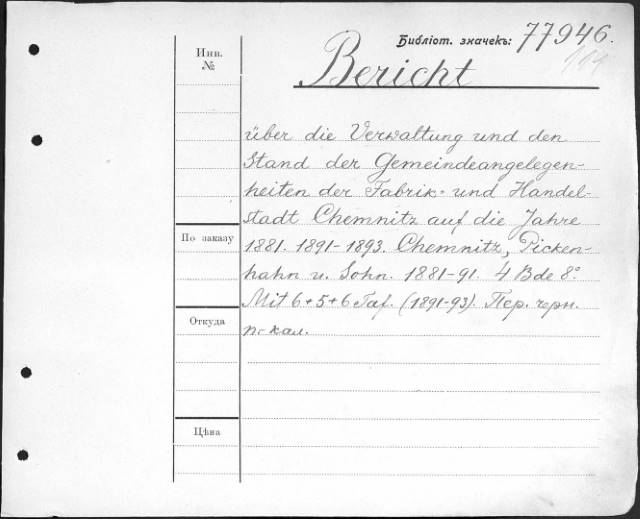 Библіот. значекъ: 77946.
114
Инв.
№
Bericht
über die Verwaltung und den
Stand der Gemeindeangelegen-
heiten der Fabrik- und Handel-
stadt Chemnitz auf die Jahre
По заказу
1881. 1891-1893. Chemnitz, Picken-
hahn u. Sohn. 1881-91. 4 Bde 8°.
Mit 6+5+6 Taf. (1891-93). Пер. черн.
Откуда
п. кал.
Цѣна